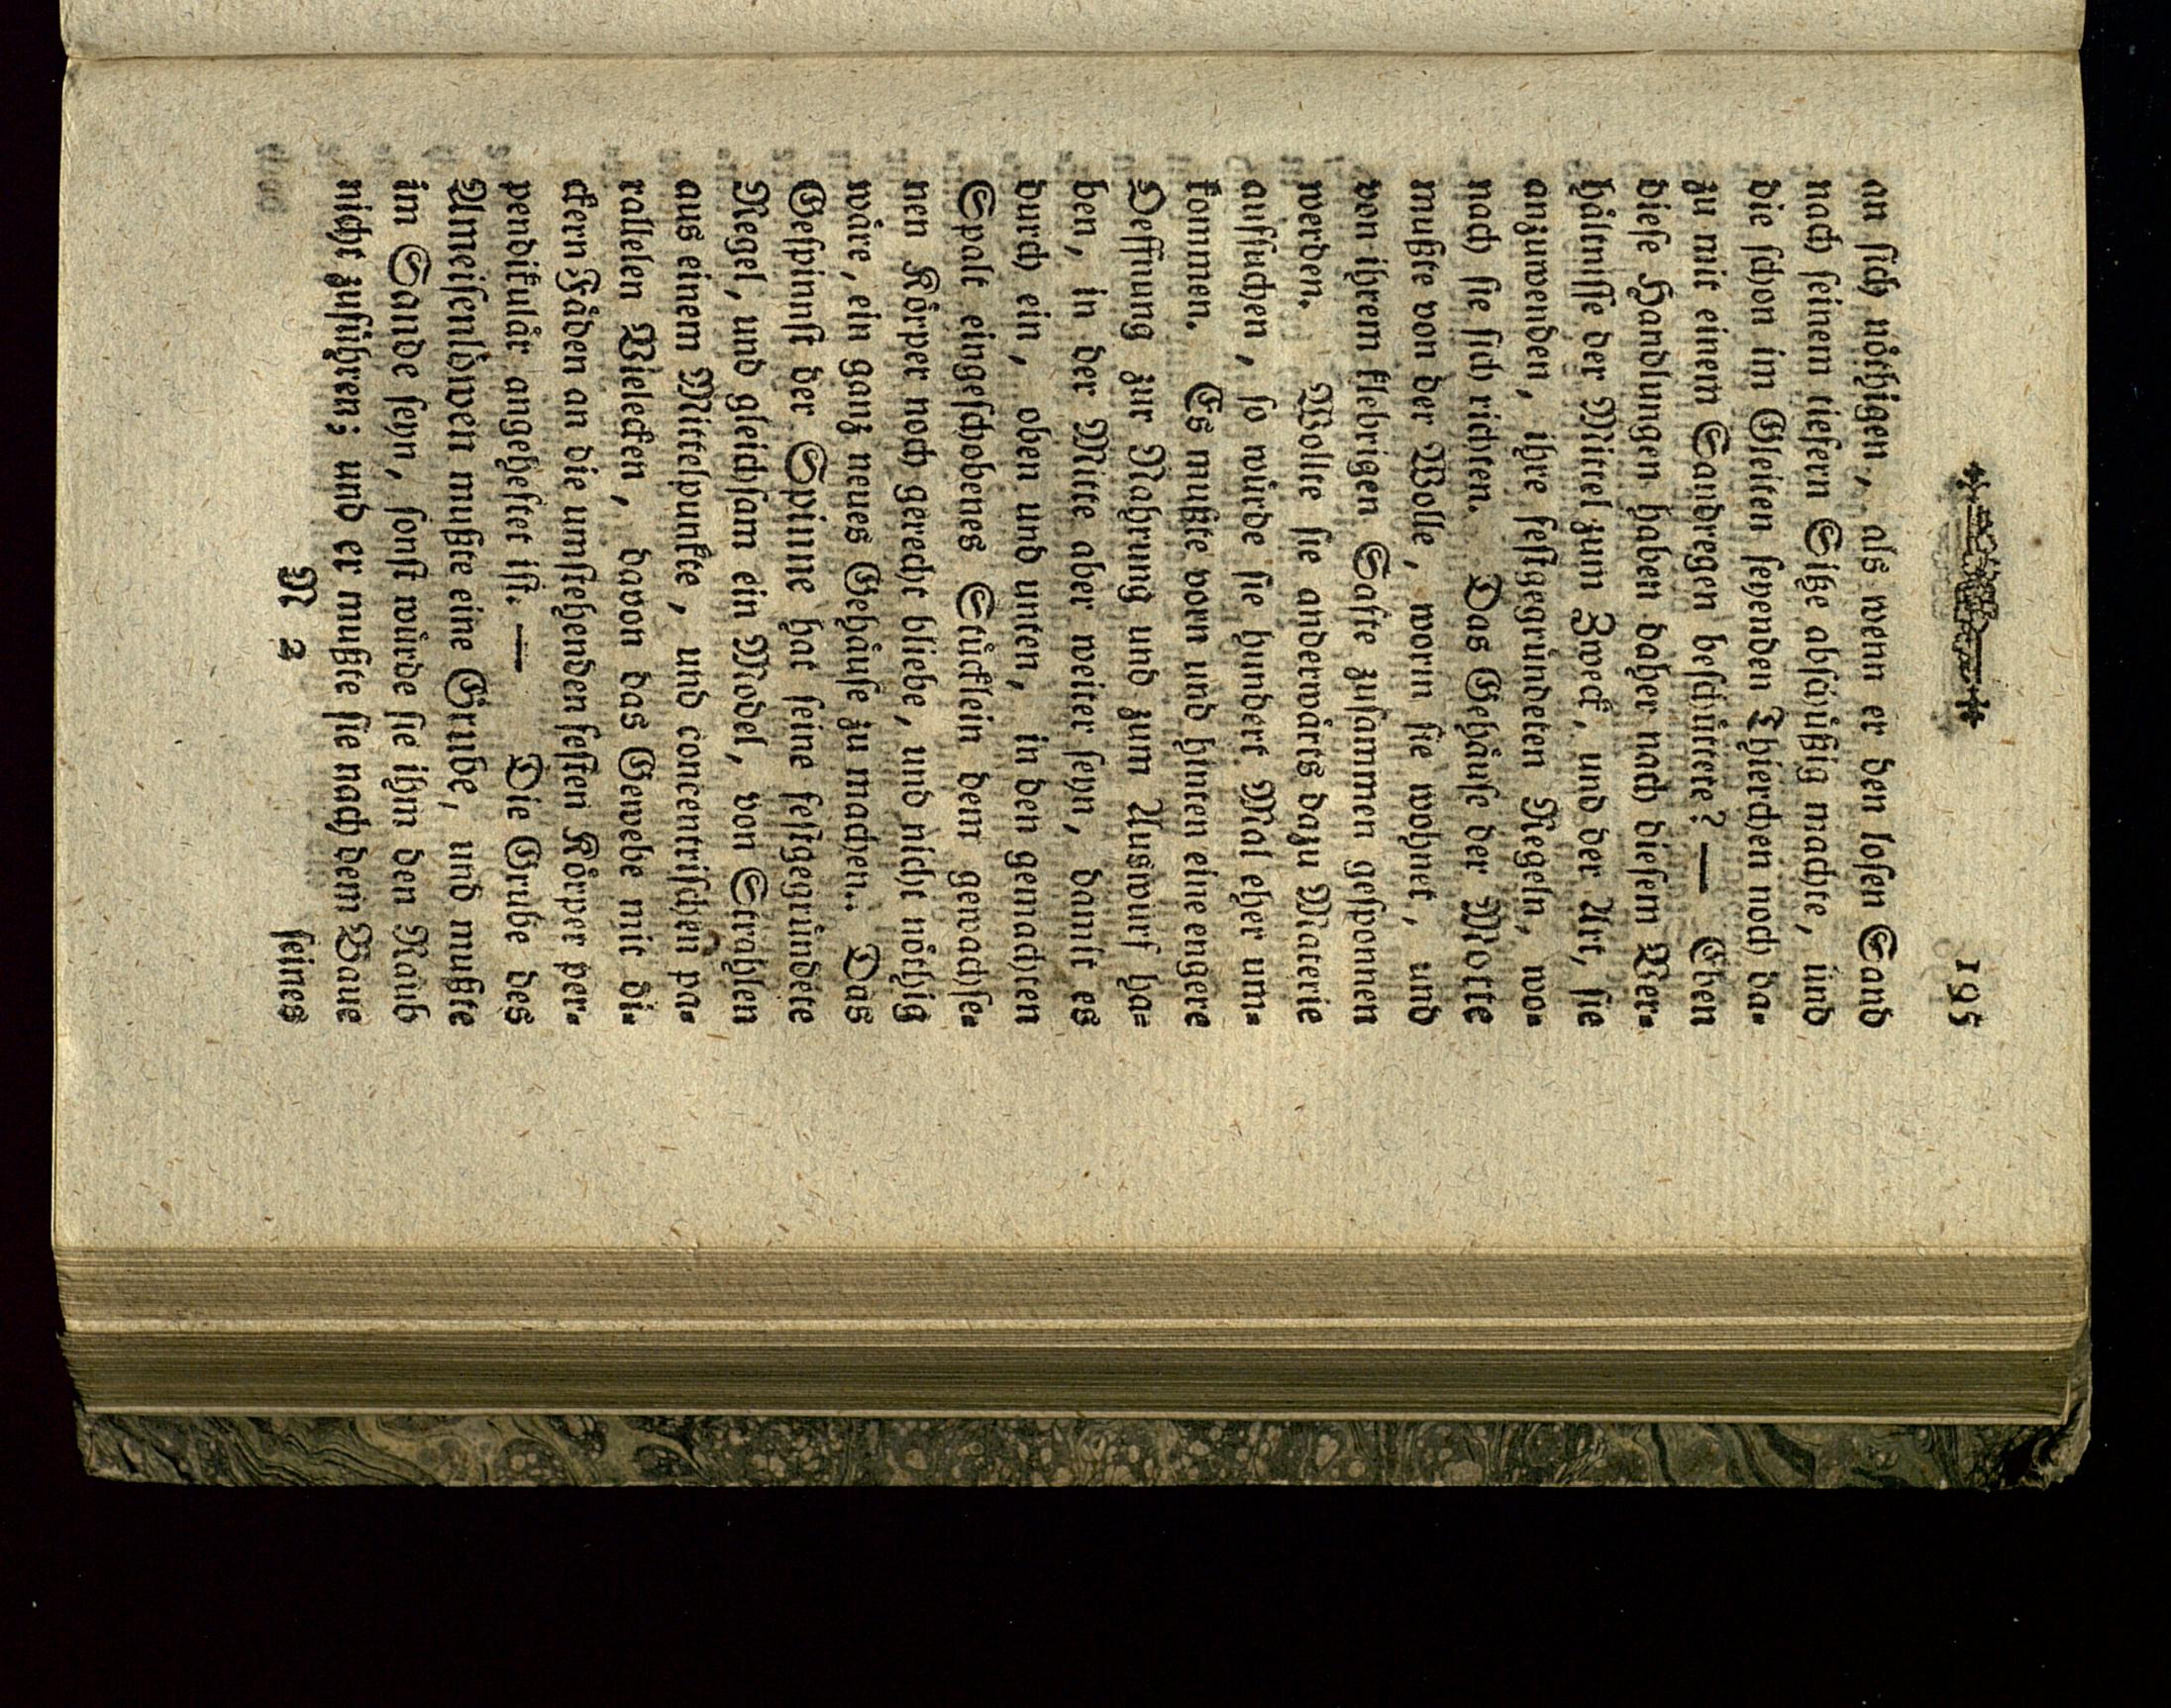 195
an ſich nöthigen, als wenn er den loſen Sand
nach ſeinem tiefern Sitze abſchüßig machte, und
die ſchon im Gleiten ſeyenden Thierchen noch da-
zu mit einem Sandregen beſchüttete? — Eben
dieſe Handlungen haben daher nach dieſem Ver-
hältniſſe der Mittel zum Zweck, und der Art, ſie
anzuwenden, ihre feſtgegründeten Regeln, wo-
nach ſie ſich richten. Das Gehäuſe der Motte
mußte von der Wolle, worin ſie wohnet, und
von ihrem klebrigen Safte zuſammen geſponnen
werden. Wollte ſie anderwärts dazu Materie
aufſuchen, ſo würde ſie hundert Mal eher um-
kommen. Es mußte vorn und hinten eine engere
Oeffnung zur Nahrung und zum Auswurf ha-
ben, in der Mitte aber weiter ſeyn, damit es
durch ein, oben und unten, in den gemachten
Spalt eingeſchobenes Stücklein dem gewachſe-
nen Körper noch gerecht bliebe, und nicht nöthig
wäre, ein ganz neues Gehäuſe zu machen. Das
Geſpinnſt der Spinne hat ſeine feſtgegründete
Regel, und gleichſam ein Model, von Strahlen
aus einem Mittelpunkte, und concentriſchen pa-
rallelen Vielecken, davon das Gewebe mit di-
ckern Fäden an die umſtehenden feſten Körper per-
pendikulär angeheftet iſt. — Die Grube des
Ameiſenlöwen mußte eine Grube, und mußte
im Sande ſeyn, ſonſt würde ſie ihm den Raub
nicht zuführen; und er mußte ſie nach dem Baue
N 2 ſeines